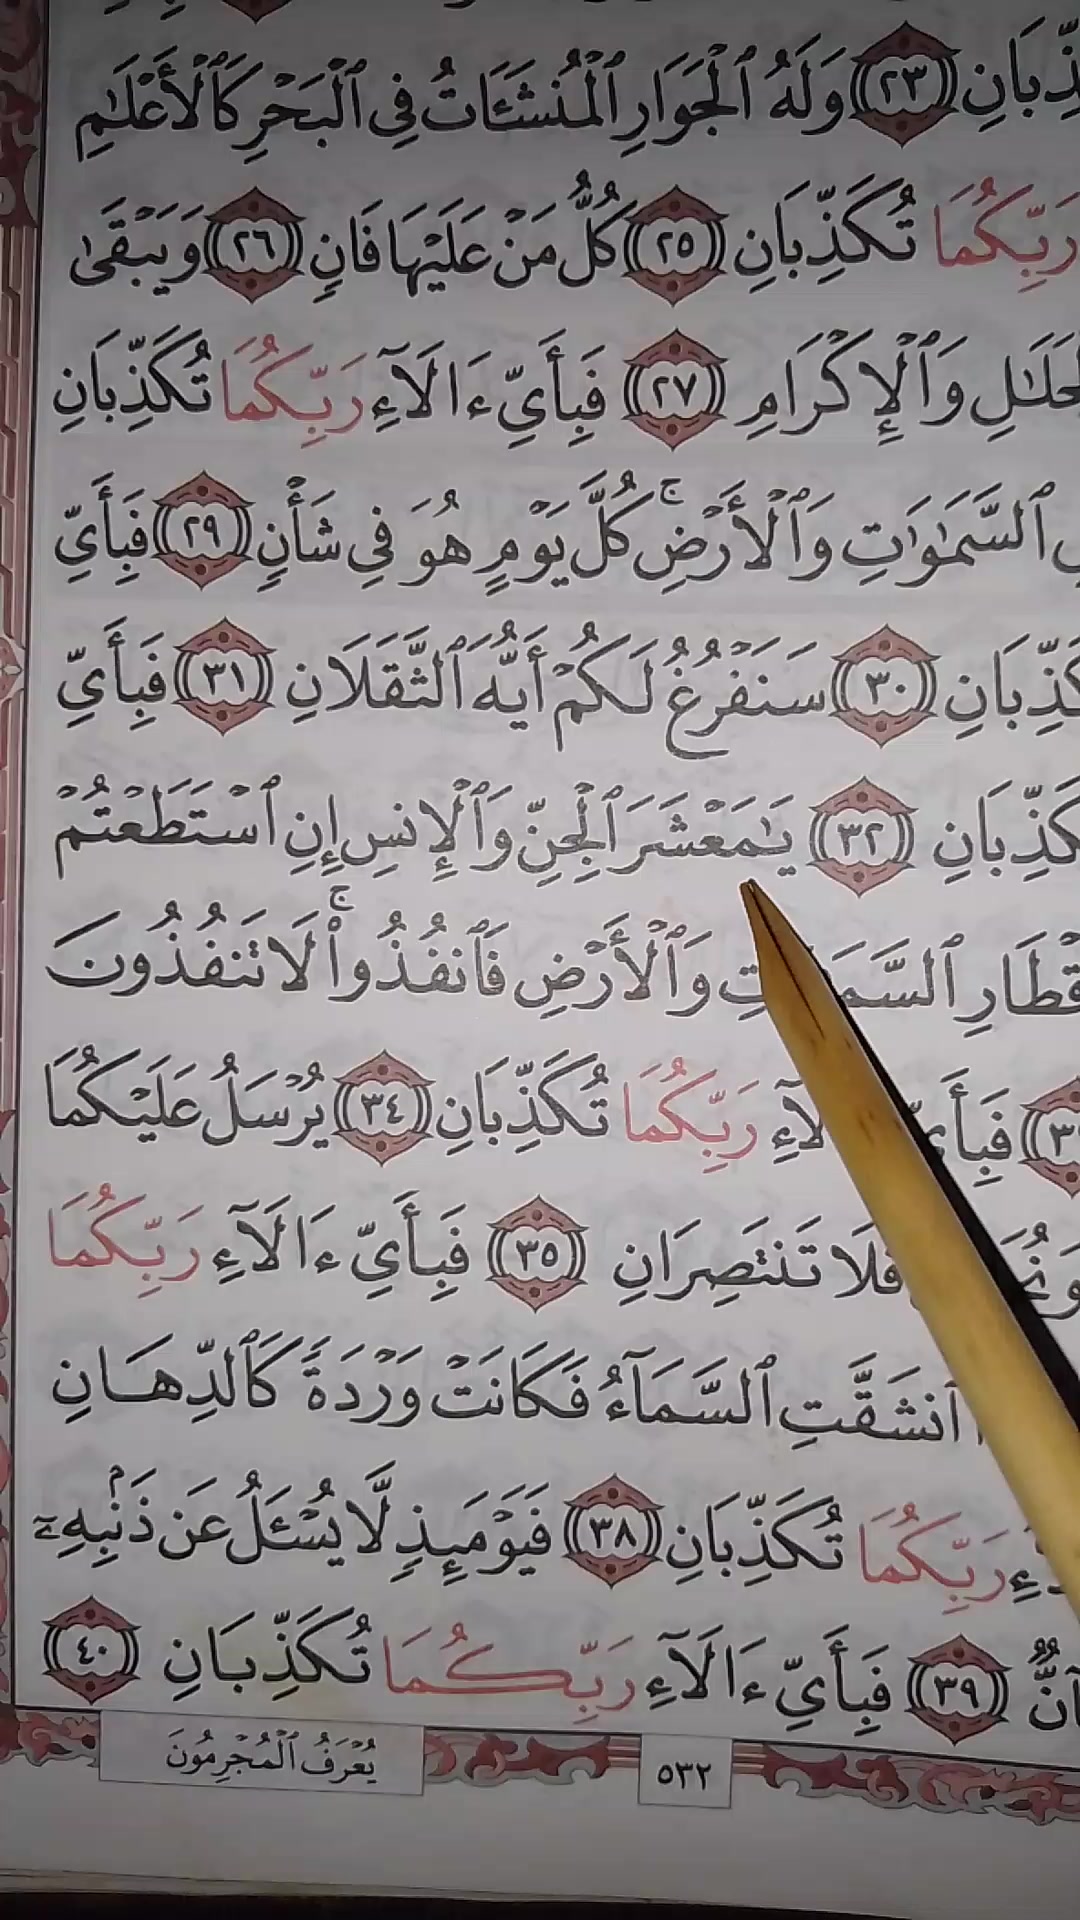 ذِّبَانِ ٢٣ وَلَهُ ٱلْجَوَارِ ٱلْمُنشَـَٔاتُ فِى ٱلْبَحْرِ كَٱلْأَعْلَٰمِ
رَبِّكُمَا تُكَذِّبَانِ ٢٥ كُلُّ مَنْ عَلَيْهَا فَانٍ ٢٦ وَيَبْقَىٰ
ٱلْجَلَٰلِ وَٱلْإِكْرَامِ ٢٧ فَبِأَىِّ ءَالَآءِ رَبِّكُمَا تُكَذِّبَانِ
ٱلسَّمَٰوَٰتِ وَٱلْأَرْضِ ۚ كُلَّ يَوْمٍ هُوَ فِى شَأْنٍ ٢٩ فَبِأَىِّ
كَذِّبَانِ ٣٠ سَنَفْرُغُ لَكُمْ أَيُّهَ ٱلثَّقَلَانِ ٣١ فَبِأَىِّ
كَذِّبَانِ ٣٢ يَٰمَعْشَرَ ٱلْجِنِّ وَٱلْإِنسِ إِنِ ٱسْتَطَعْتُمْ
قْطَارِ ٱلسَّمَٰوَٰتِ وَٱلْأَرْضِ فَٱنفُذُوا۟ ۚ لَا تَنفُذُونَ
فَبِأَىِّ ءَالَآءِ رَبِّكُمَا تُكَذِّبَانِ ٣٤ يُرْسَلُ عَلَيْكُمَا
فَلَا تَنتَصِرَانِ ٣٥ فَبِأَىِّ ءَالَآءِ رَبِّكُمَا
ٱنشَقَّتِ ٱلسَّمَآءُ فَكَانَتْ وَرْدَةً كَٱلدِّهَانِ
رَبِّكُمَا تُكَذِّبَانِ ٣٨ فَيَوْمَئِذٍ لَّا يُسْـَٔلُ عَن ذَنۢبِهِۦٓ
آنٌّ ٣٩ فَبِأَىِّ ءَالَآءِ رَبِّكُمَا تُكَذِّبَانِ ٤٠
يُعْرَفُ ٱلْمُجْرِمُونَ
٥٣٢